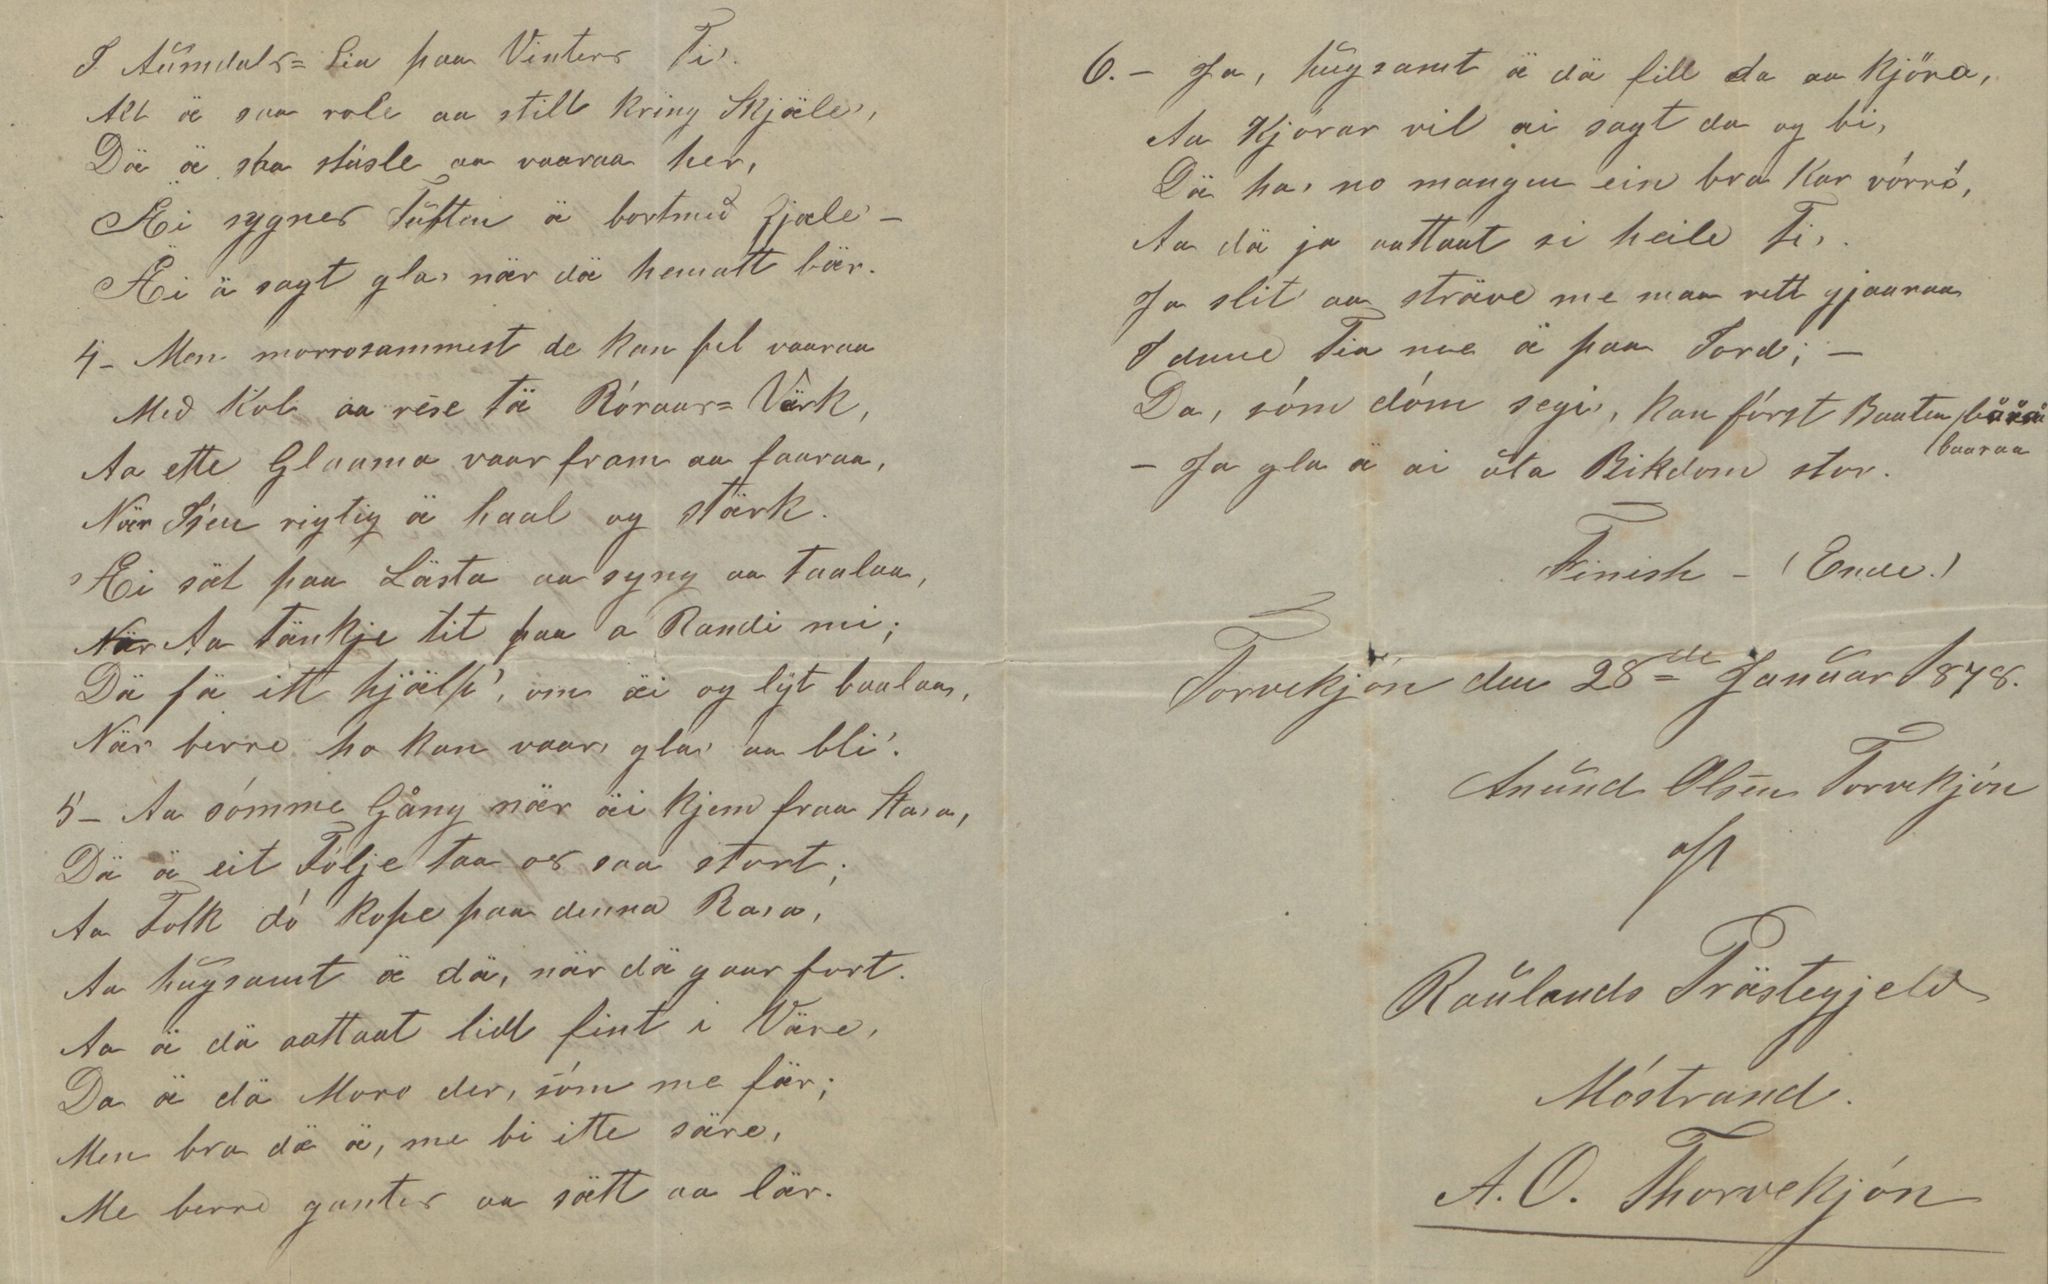 I Aŭmdals= Lia paa Vinters Ti'.
Alt ä saa role aa still kring Skjäle',
Dä ä staa stŭsle aa vaaraa her,
Äi sygner Tŭften ä bortmed Fjæle' –
Äi ä sagt gla' när dä hematt bär.
4 – Men morrosammest de kan fel vaaraa
Med Kol aa reise tä Röraas= Värk,
Aa ette Glaama vaar fram aa faaraa,
När Isen rigtig ä haal og stärk.
Äi sät paa Lästa aa syng aa taalaa,
Aa tänkje tit paa a Randi mi;
Dä fä itt hjälp', om äi og lyt baalaa,
När berre ho kan vaar' gla' aa bli'.
5 – Aa sómme Gång när äi kjem fraa Kasa,
Dä ä eit Fólje taa os saa stort;
Aa Folk dó kope paa denna Rasa,
Aa hŭgsamt ä dä, när dä gaar fort.
Aa ä dä aattaat lidt fint i Väre,
Da ä dä Moro der, sóm me fär;
Men bra dä ä, me bi itte säre,
Me berre gantes aa sätt aa lär.
6. – Ja, hŭgsamt ä dä fill da aa kjöra,
Aa Kjórar vil äi sagt da og bi,
Dä ha' no mangen ein bra Kar vórró,
Aa dä ja aattaat si heile Ti'.
Ja slit aa sträve me maa rett gjaaraa
I denne Tia me ä paa Jord; –
Da, sóm dóm segi', kan fórst Baaten
baaraa
– Ja gla ä äi ŭta Rikdom stor.
Finish – (Ende.)
Torvekjón den 28de Janŭar 1878.
Anŭnd Olsen Torvekjón
af
Raŭlands Prästegjeld
Móstrand.
A. O. Thorvekjón